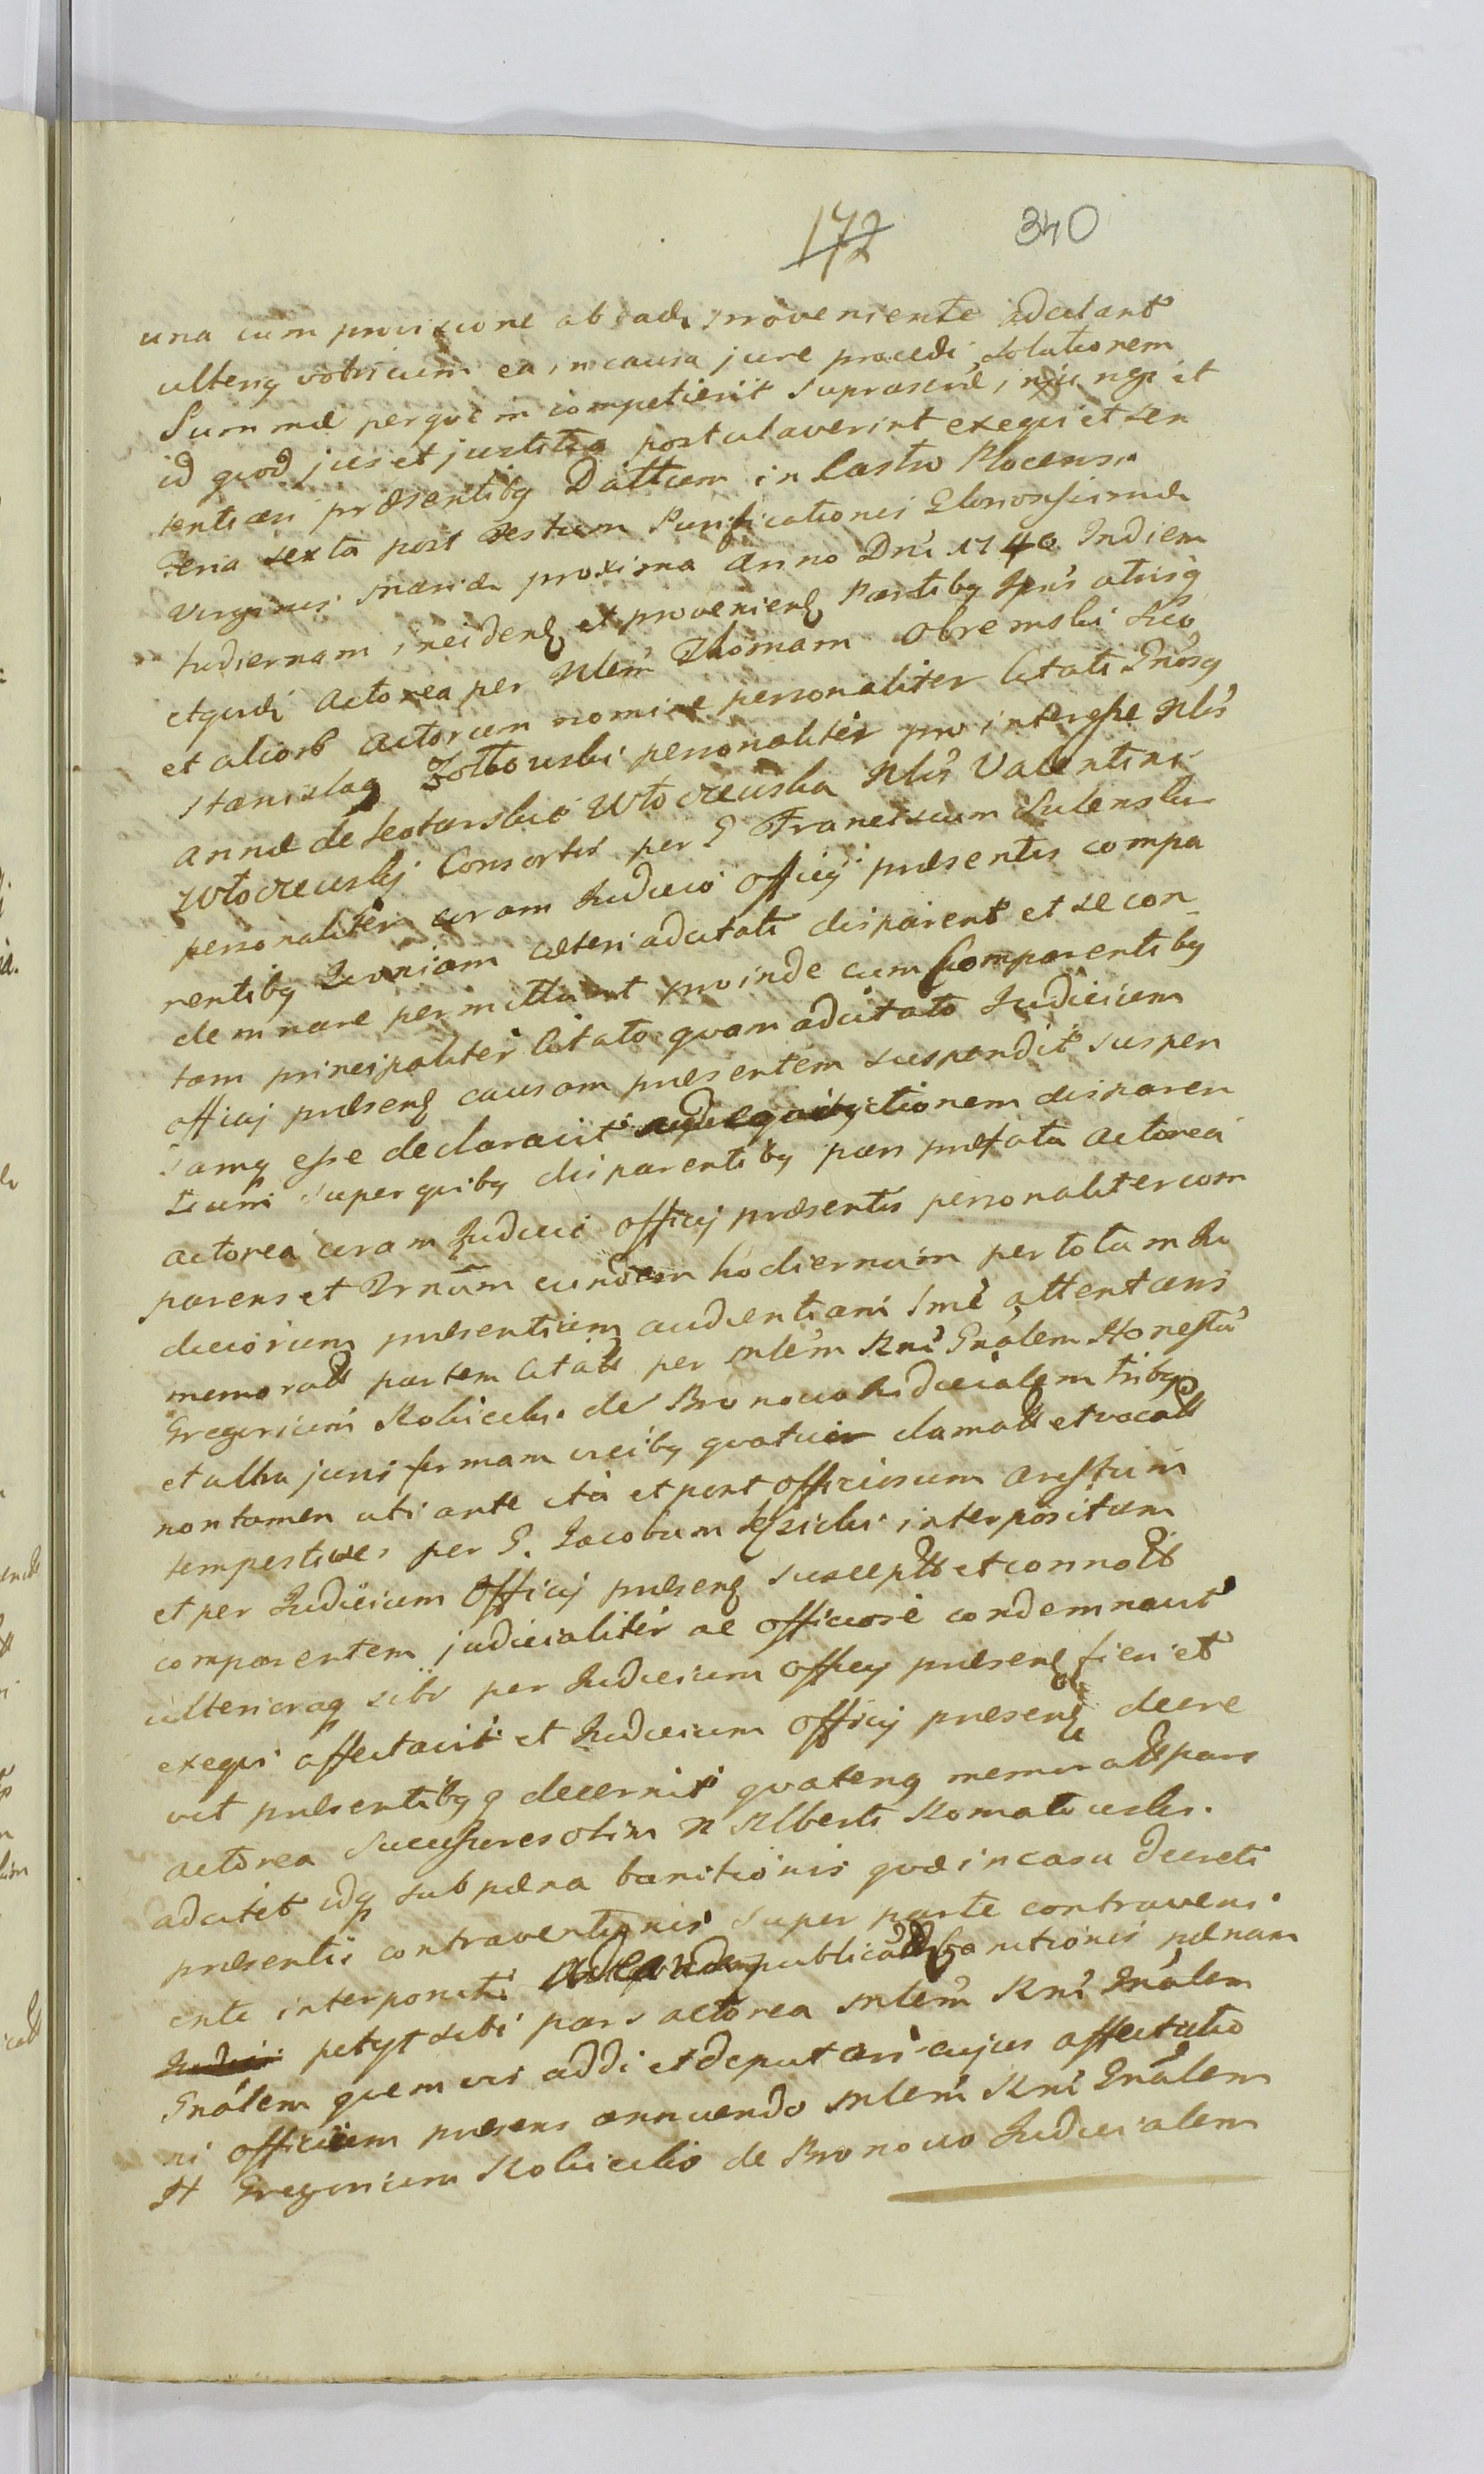 172 340
una cum provisione ab eade proveniente adcitant
ulteriq votivum ea in causa jure procedi Solutionem
Summæ per qvem competierit suprascrỉæ injungi et
id qvod jus et justitia postulaverint exequi et sen
tentiari præsentibg Dattum in Castro Plocensi
Feria sexta post Festum Purificationis Gloriosissimæ
Virginis Mariæ proxima Anno Dni 1746 Indiem
hudiernam incideng et provenieng Partibg Ipnis utrisq
etqvidi Actorea per Nlem Thomam Obremski suo
et aliorū Actorum nomine personaliter Citati Gnosq
Stanislaq Zottowski personaliter pro interesse Nlis
Annæ de Leotarskie Włoczewska Nlis Valentini
Włoczewskj Consortis per G Franciscum Sulenski
personaliter coram Judicio Officij præsentis compa
rentibg Qvoniam cæteri adcitati disparent et se con
demnare permittunt proinde cum Comparentibg
tam principaliter Citato qvam adcitato Judicium
Officij præseng causam præsentem suspendit suspen
samq esse declaravit ctionem disparen
tium super qvibg disparentibg pars præfata Actorea
Actorea coram Judicio Officij præsentis personaliter com
parens et Trnūm eundem hodiernum per totam Ju
diciorum præsentium audientiam Smé attentans
memoratt partem Citatt per Mlém Rni Gnálem Honestū
Gregorium Kobiceki de Bronowo Judicialem tribg
et ultra juris formam vicibg qvatuor clamatt et vocatt
non tamen uti ante ita et post Officiosum Arestum
tempestive per G. Jacobum interpositum
et per Judicium Officij præseng susceptt et connott
comparentem judicialiter ac officiosé condemnavit
ulterioraq sibi per Judicium Officij præseng fieri et
exeqvi affectavit et Judicium Officij præseng decre
vit præsentibg q decernit qvatenq memoratt pars
Actorea Successores olim N Alberti Komatowski
adcitet idq sub pæna banitionis qvæ in casu Decreti
præsentis contraventionis super parte contraveni
ente interponiti publicatt banitionis pænam
petyt sibi pars Actorea Mlém Rni Gnálem
Gnálem qvemvis addi et deputari cujus affectatio
ni officium præsens annuendo Mlém Rni Gnálem
H Gregorium Kobiceki de Bronowo Judicialem